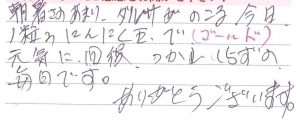 猛暑のあまり、ダルサがのこる今日
1粒のにんにく玉で(ゴールド)
元気に回復、つかれしらずの
毎日です。
ありがとうございます。